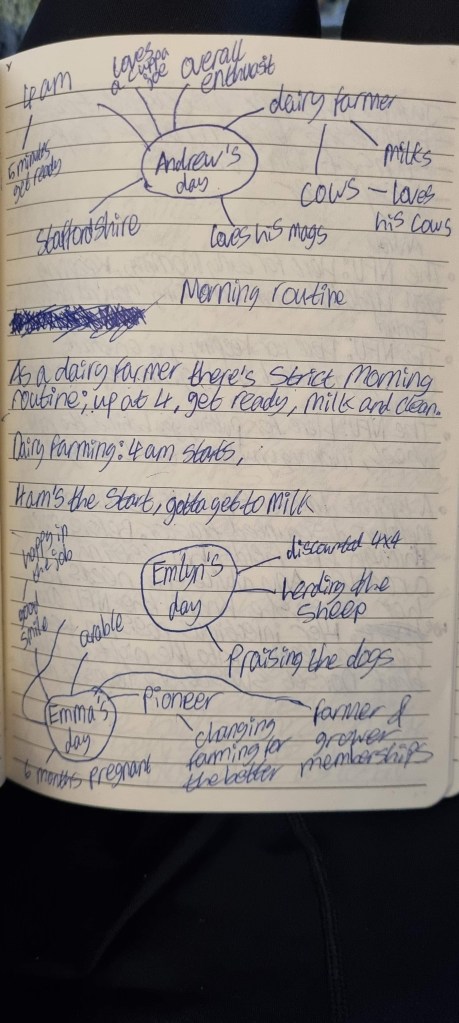 4am
5 minutes
get ready
loves
a cuppa
tea
overall
enthusist
dairy farmer
milks
cows – loves
his cows
Andrew's
day
Staffordshire
loves his mags
Morning routine
As a dairy farmer there's strict morning
routine; up at 4, get ready, milk and clean.
Dairy farming: 4am starts,
4am's the start, gotta get to milk
happy in
the job
good
smile
arable
Emlyn's
day
discounted 4x4
herding the
sheep
Praising the dogs
Emma's
day
Pioneer
changing
farming for
the better
farmer &
grower
memberships
6 months pregnant